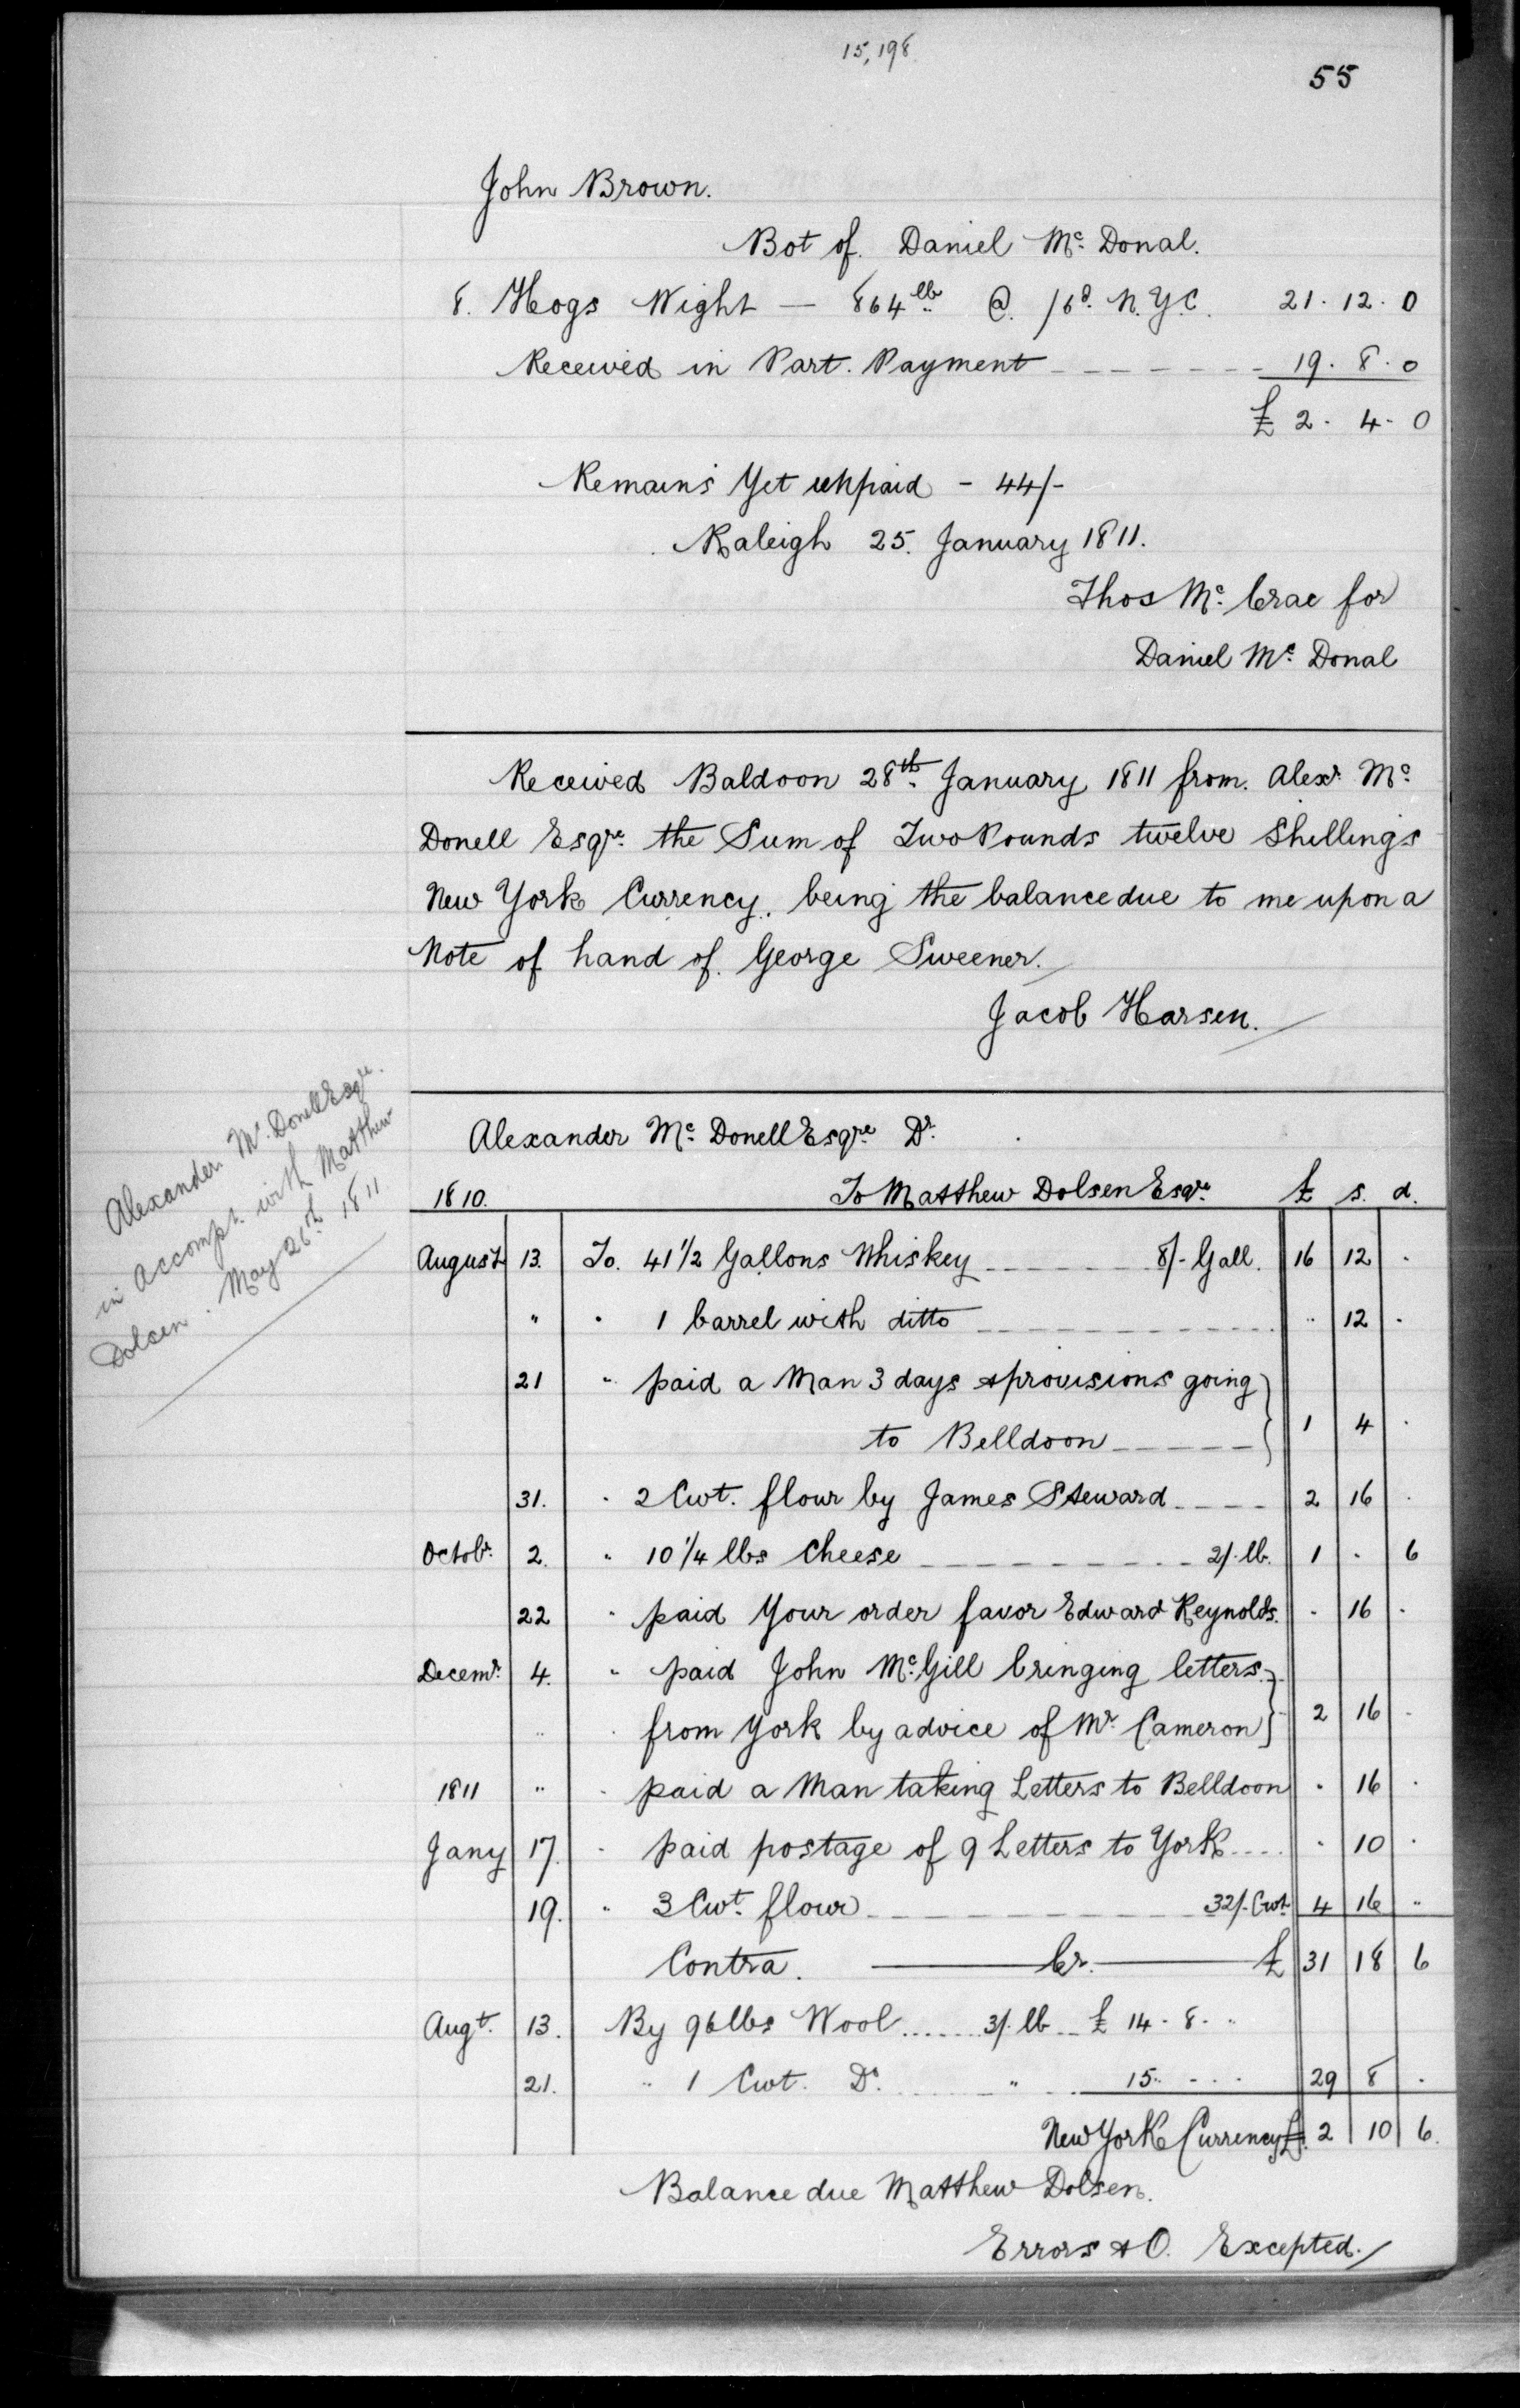 15,198
55
John Brown.
Bot of. Daniel Mc. Donal.
8. Hogs Wight — 864 lb @. /6d. N.Y.C. 21. 12. 0
Received in Part. Payment 19. 8. 0
£ 2. 4. 0
Remains Yet unpaid - 44/-
Raleigh 25. January 1811.
Thos Mc. Crae for
Daniel Mc. Donal
Received Baldoon 28th January 1811 from. Alexr. Mc.
Donell Esqre. the Sum of Two Pounds twelve Shillings
New York Currency. being the balance due to me upon a
Note of hand of. George Sweener.
Jacob Harsen.
Alexander Mc. Donell Esqre.
in Accompt. with Matthew
Dolsen. May 26th 1811
Alexander Mc. Donell Esqre Dr.
1810. To Matthew Dolsen Esqr. £ s. d.
August 13. To. 41 1/2 Gallons Whiskey 8/- Gall. 16 12 .
" . 1 barrel with ditto " 12 .
21 " paid a Man 3 days & provisions going
to Belldoon 1 4 .
31. . 2 Cwt. flour by James Steward 2 16 .
Octobr. 2. " 10 1/4 lbs Cheese 2/. lb. 1 . 6
22 " paid Your order favor Edward Reynolds. . 16 .
Decemr. 4. " paid John Mc. Gill bringing letters
" . from York by advice of Mr. Cameron 2 16 .
1811 " . paid a Man taking Letters to Belldoon . 16 .
Jany 17. . paid postage of 9 Letters to York . 10 .
19. " 3 Cwt. flour 32/. Cwt. 4 16 "
Contra. Cr. £ 31 18 6
Augt. 13. By 96 lbs Wool 3/. lb £ 14. 8. "
21. " 1 Cwt. Do. " 15. . . 29 8 .
New York Currency £. 2 10 6.
Balance due Matthew Dolsen.
Errors & O. Excepted.